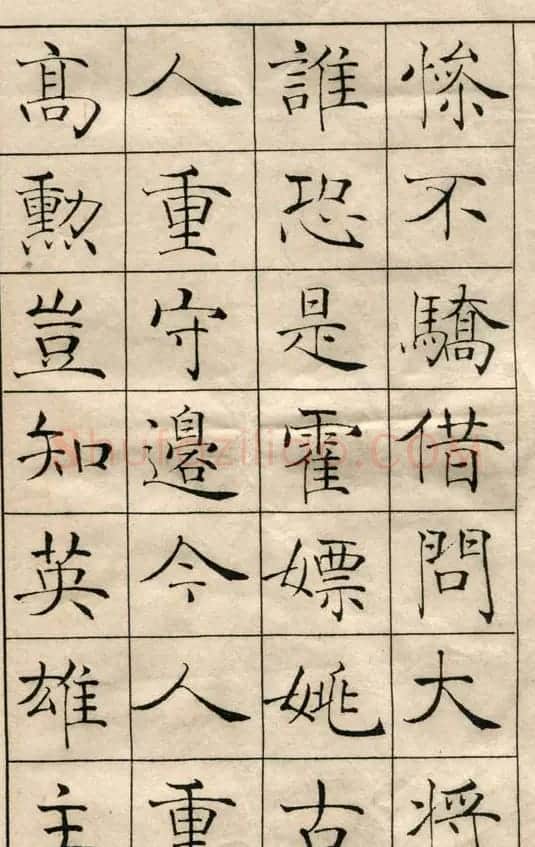 慘不驕借問大將
誰恐是霍嫖姚古
人重守邊今人重
高勳豈知英雄主